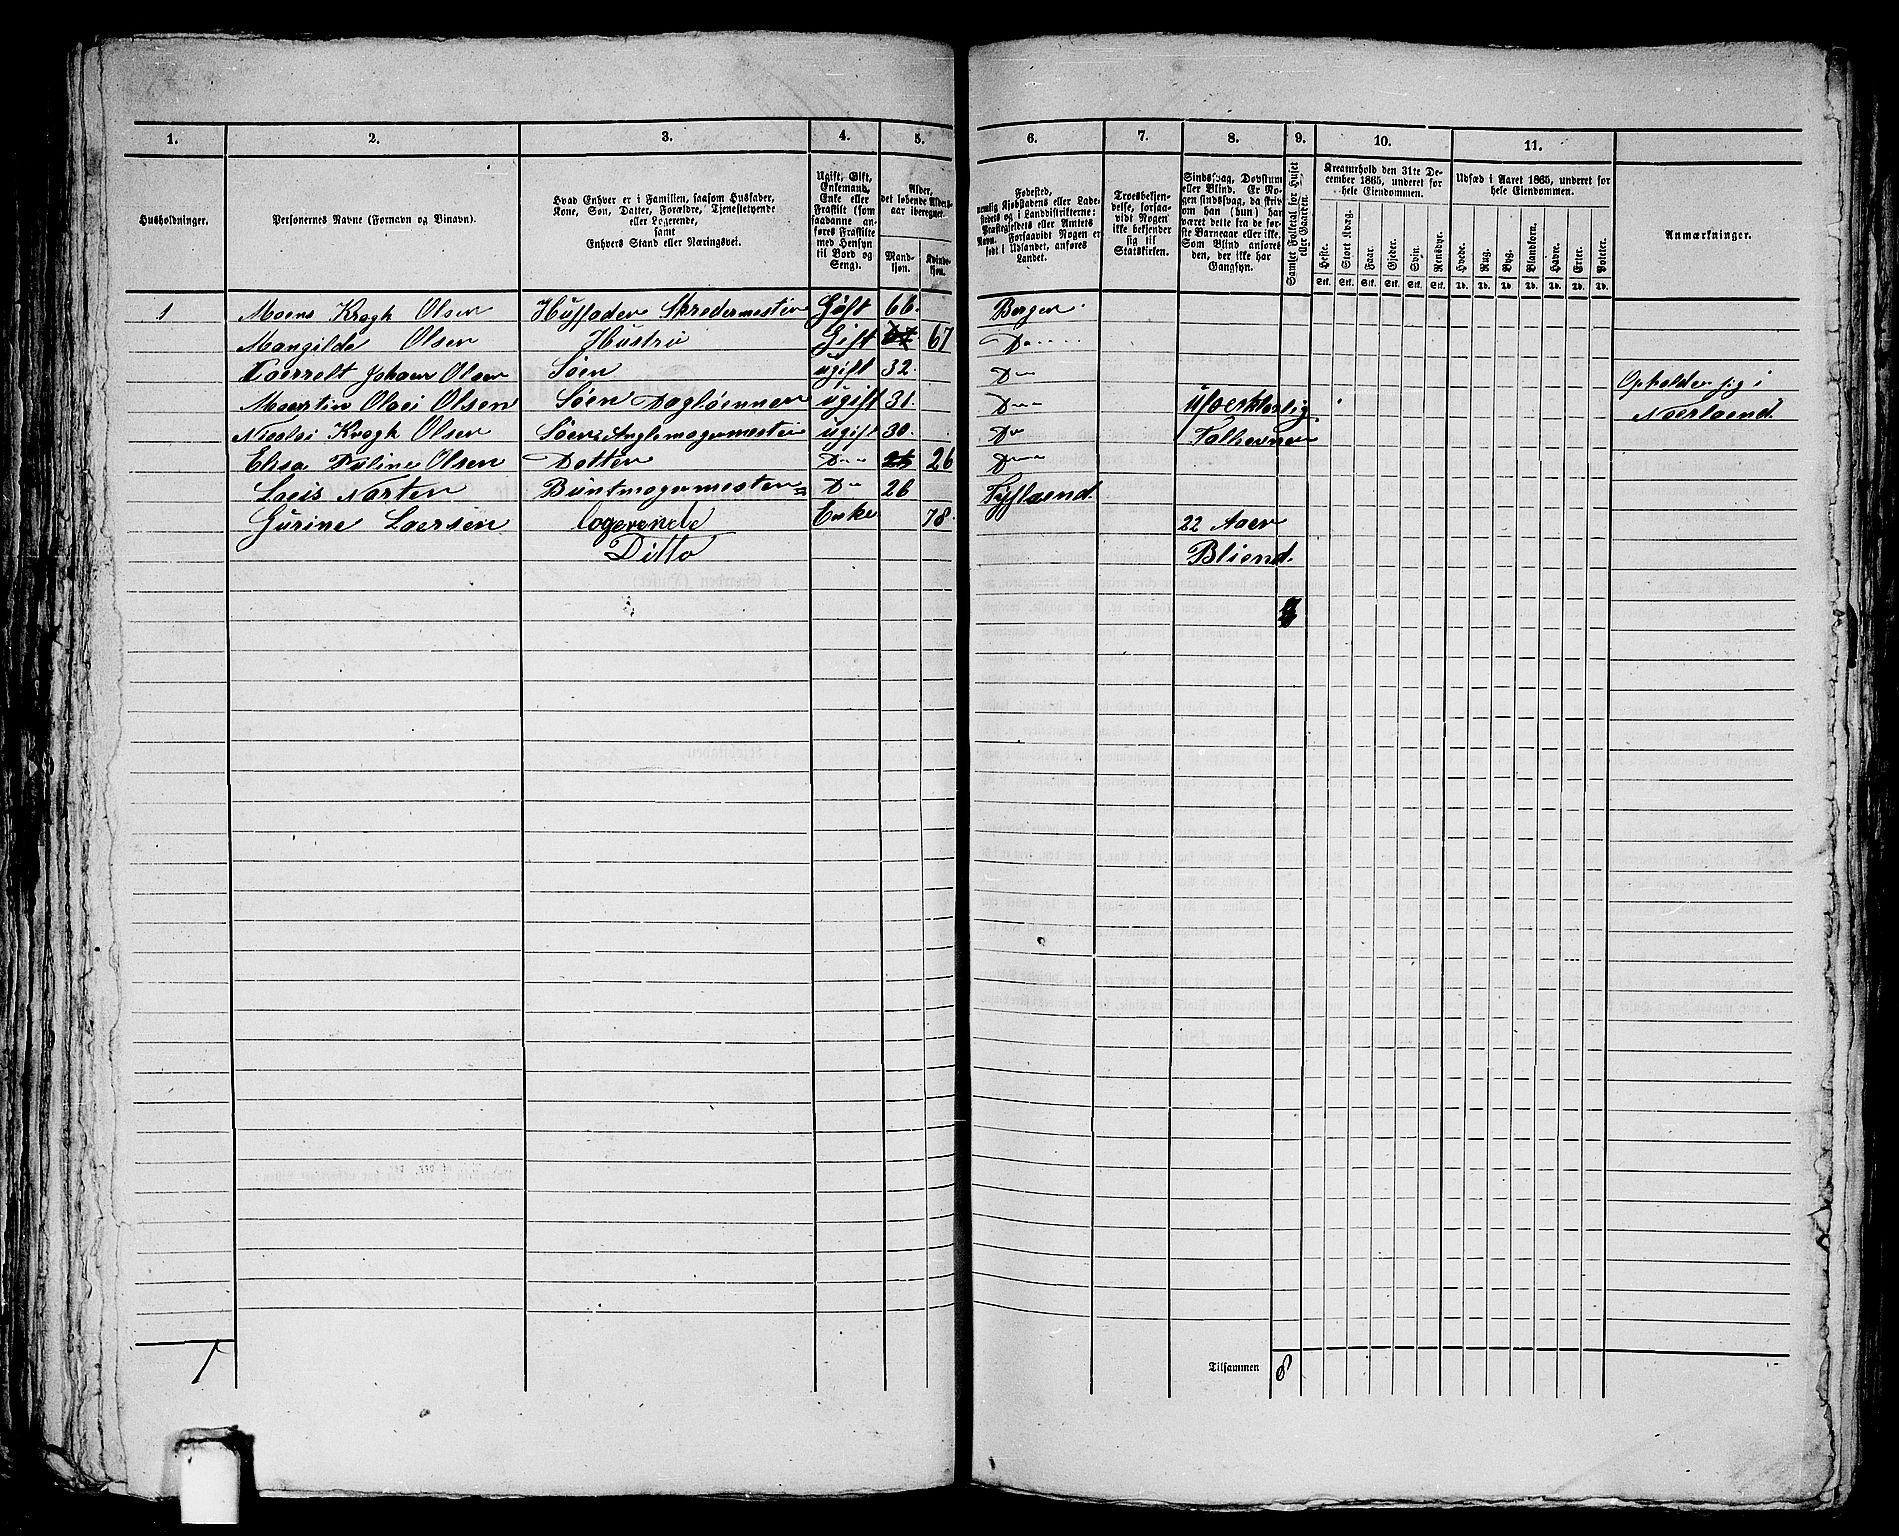 1. 2. 3. 4. 5. 6. 7. 8. 9. 10. 11.
Husholdninger.
Personernes Navne (Fornavn og Tilnavn).
Hvad Enhver er i Familien, saasom Husfader,
Kone, Søn, Datter, Forældre, Tjenestetyende
eller Logerende,
samt
Enhvers Stand eller Næringsvei.
Ugift, Gift,
Enkemand,
Enke eller
Fraskilt (som
saadanne an-
føres Fraskilte
med Hensyn
til Bord og
Seng).
Alder,
det løbende Alders-
aar iberegnet.
Mand-
kjøn.
Kvinde-
kjøn.
Fødested,
nemlig Kjøbstadens eller Lade-
stedets og i Landdistrikterne:
Præstegjeldets eller Amtets
Navn. Forsaavidt Nogen er
født i Udlandet, anføres
Landet.
Troesbekjen-
delse, forsaa-
vidt Nogen
ikke bekjender
sig til
Statskirken.
Sindssvag, Døvstum
eller Blind. Er No-
gen sindssvag, da skri-
ves om han (hun) har
været dette fra de før-
ste Barneaar eller ikke.
Som Blind anføres
den, der ikke har
Gangsyn.
Samlet Folketal for Huset
eller Gaarden.
Kreaturhold den 31te De-
cember 1865, underet for
hele Eiendommen.
Heste. Stort Kvæg. Faar. Gjeder. Svin. Rensdyr.
Stk. Stk. Stk. Stk. Stk. Stk.
Udsæd i Aaret 1865, underet for
hele Eiendommen.
Hvede. Rug. Byg. Blandkorn. Havre. Erter. Poteter.
Td. Td. Td. Td. Td. Td. Td.
Anmærkninger.
1 Moens Krogh Olsen Husfader Skredermester Gift 66. Bergen
Mangilde Olsen Hustru Gift 67 D
Johaen Olsen Søen ugift 32. D
Maartin Olaei Olsen Søen Dagløenner ugift 31. D
Opholder sig i
Naerlaend.
Nicolai Krogh Olsen Søen ugift 30. D
Elisa Puline Olsen Dotter D 26 D
Laeis Norten Buntmagermester D 26 Tyslaend.
Gurine Laersen logerende Enke 78. 22 Aaer
Ditto Bliend.
1
Tilsammen 8